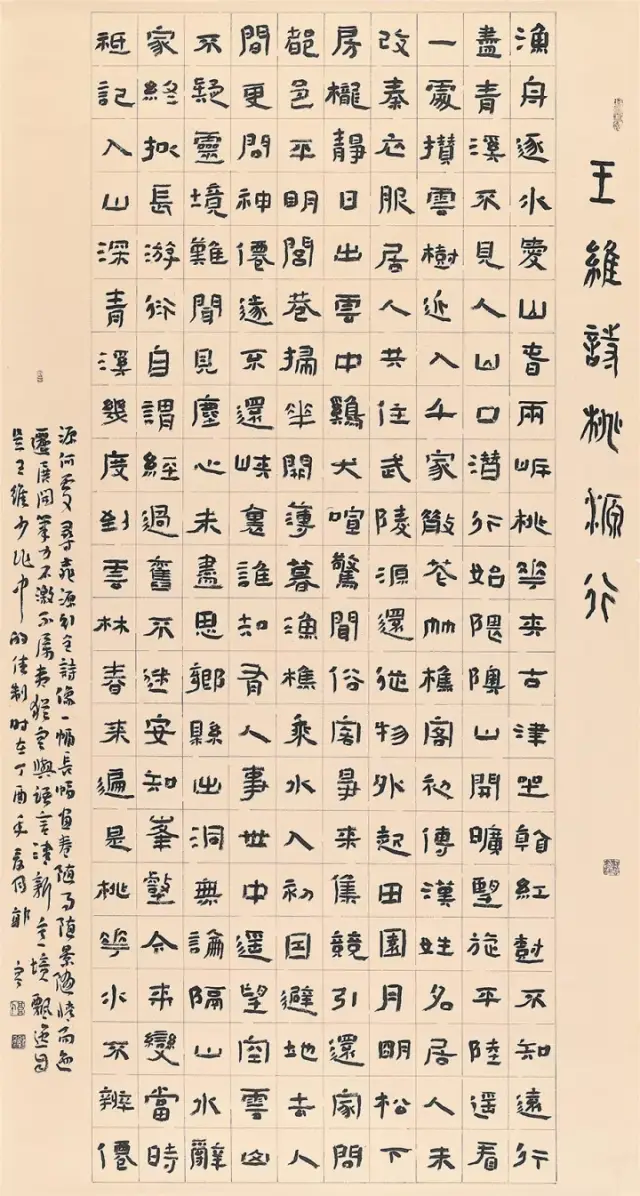 王維詩桃源行
漁舟逐水愛山春兩岸桃花夾古津坐看紅樹不知遠行
盡青溪不見人山口潛行始隈隩山開曠望旋平陸遙看
一處攢雲樹近入千家散花竹樵客初傳漢姓名居人未
改秦衣服居人共住武陵源還從物外起田園月明松下
房櫳靜日出雲中雞犬喧驚聞俗客爭來集競引還家問
都邑平明閭巷掃花開薄暮漁樵乘水入初因避地去人
間更問神僊遂不還峽裏誰知有人事世中遙望空雲山
不疑靈境難聞見塵心未盡思鄉縣出洞無論隔山水辭
家終擬長游衍自謂經過舊不迷安知峯壑今來變當時
祗記入山深青溪幾度到雲林春來遍是桃花水不辨僊
源何處尋桃源行全詩像一幅長幅畫卷隨隨景隨情而
展開筆力不激不厲與語言清新意境飄逸自
是王維少作中的佳制時在丁酉年夏月